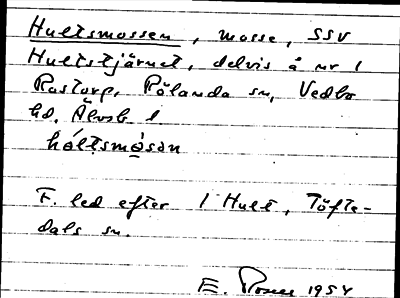 Hultsmossen, mosse, SSV
Hultstjärnet, delvis å nr 1
Rostorp, Rölanda sn, Vedbo
hd, Älvsb l
håltsmòsàn
F. led efter 1 Hult, Töfte-
dals sn.
E. 195